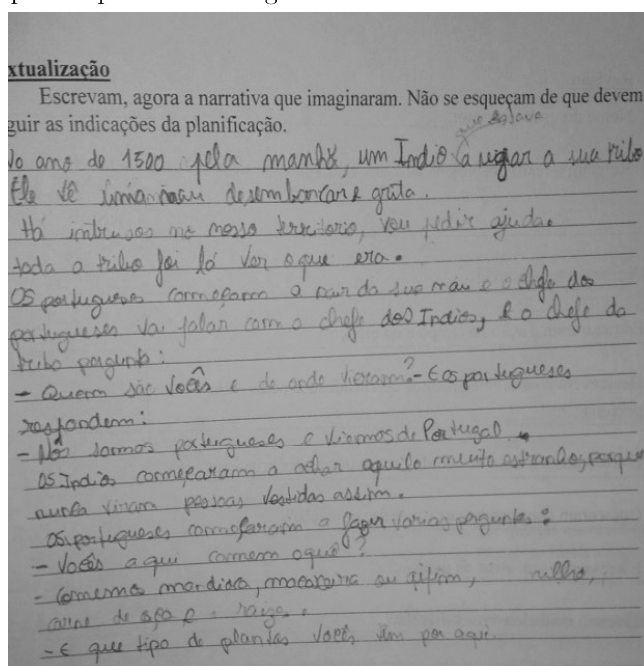 xtualização
Escrevam, agora a narrativa que imaginaram. Não se esqueçam de que devem
guir as indicações da planificação.
que estava
No ano de 1500 pela manhã, um Indio a vigiar a sua tribo
Ele vê uma nau desembarcar e grita.
Há intrusos no nosso territorio, vou pedir ajuda.
toda a tribo foi lá ver o que era.
OS portugueses começaram a sair da sua nau e o chefe dos
portugueses vai falar com o chefe dos Indios, e o chefe da
tribo pergunta:
- Quem são vocês e de onde vieram? - E os portugueses
respondem:
- Nós somos portugueses e viemos de Portugal
OS Indios começaram a achar aquilo muito estranho, porque
nunca viram pessoas vestidas assim.
OS portugueses começaram a fazer varias perguntas:
- Vocês aqui comem oquê?
- Comemos mandioca, macaxeira ou aipim, milho,
carne de e raizes.
- E que tipo de plantas vocês têm por aqui.